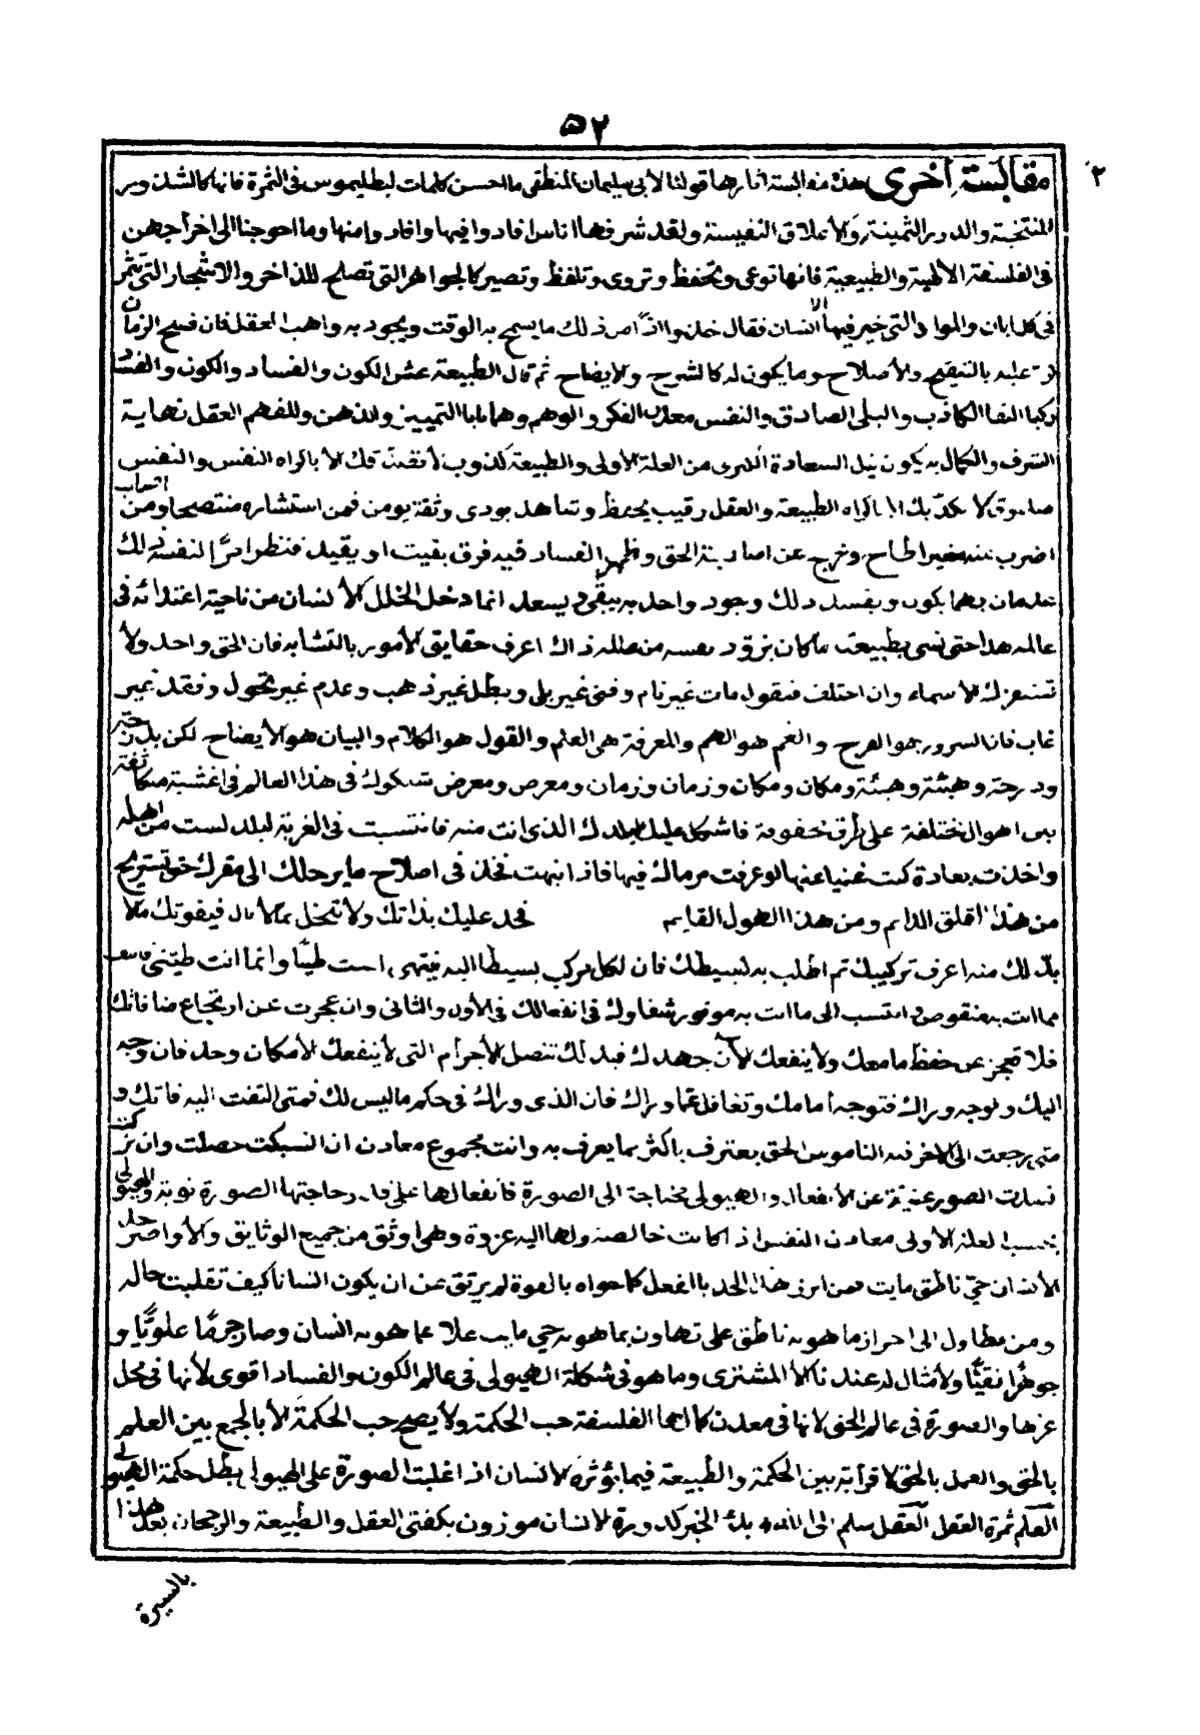 ٥٢
٢
مقابسة أخرى هذه مقابسة أثارها قولنا لأبى سليمان المنطقى ما احسن كلمات لبطليموس فى الثمرة فانها كالشذور
المنتخبة والدور الثمينة والأعلاق النفيسة ولقد شرفها اناس افادوا فيها وافادوا منها وما احوجنا الى اخراجهن
فى الفلسفة الألهية والطبيعية فانها توعى وتحفظ وتروى وتلفظ وتصير كالجواهر التى تصلح للذاخر والاشجار التى تثمر
فى كل ابان والمواد التى خير فيها الانسان فقال خذوا اذا من ذلك ما يسمح به الوقت ويجود به واهب العقل فان فسح الزمان
عليه بالتنقيح والأصلاح وما يكون له كالشرح والايضاح ثم قال الطبيعة عش الكون والفساد والكون والفساد
الكاذب والبلى الصادق والنفس معدن الفكر والوهم وهما بابا التمييز والذهن وللفهم العقل نهاية
الشرف والكمال به يكون نيل السعادة الكبرى من العلة الأولى والطبيعة كذوب لأ تصدقك الا باكراه النفس والنفس
صدوق لا تكذبك الا باكراه الطبيعة والعقل رقيب يحفظ وتعاهد بودى وثقة يومن فمن استشاره منتصحا اصاب ومن
اضرب عنه طاح وخرج عن اصابة الحق وظهر الفساد فيه فرق بقيت او يقيد فنظر امرأ لنفسه ذلك
بهما يكون ويفسد ذلك وجود واحد به يبقى ويسعد انما دخل الخلل الأنسان من ناحية اعتدائه فى
عالمه هذا حتى نسى بطبيعته ما كان يزود نفسه من ذاك اعرف حقايق الأمور بالتشابه فان الحق واحد ولا
تستفزك الأسماء وان اختلف فنقول مات غير نام وفنى غير بلى وبطل غير ذهب وعدم غير تحول وفقد غير
غاب فان السرور هو الفرح والغم هو الهم والمعرفة هى العلم والقول هو الكلام والبيان هو الأيضاح لكن بدرجة
ودرجة وهيئة وهيئة ومكان ومكان وزمان وزمان ومعرض ومعرض شكوك فى هذا العالم فى اغشية متكاثفة
بين اهوال مختلفة على طرق خفوية فاشكل عليك بلدك الذى انت منه فانتسبت فى الغربة لبلد لست من اهله
واخذت بعادة كنت غنيا عنها لو عرفت فيها فاذا انبهت فخذ فى اصلاح ما يرحلك الى مقرك حتى تستريح
من هذا القلق الدائم ومن هذا الهول القايم فجد عليك بذاتك ولا تبخل بما لا ينال فيفوتك ما لا
بد لك منه اعرف تركيبك ثم اطلب به لبسيطك فان لكل مركب بسيطا اليه ينتهى لست طينا وانما انت طينى فانتف
مما انت به منقوص وانتسب الى ما انت به موفور شفاوك فى انفعالك فى الأول والثانى وان عجزت عن ارتجاع ما فاتك
فلا تعجز عن حفظ ما معك ولا ينفعك الآن جهدك فبذلك تتصل الأجرام التى لا ينفعك لأمكان وحد فان وجه
اليك ونوجه وراك فتوجه أمامك وتغافل عما وراك فان الذى وراك فى حكم ما ليس لك فمتى التفت اليه فاتك و
متى رجعت الى الناموس الحق يعترف باكثر مما يعرف به وانت مجموع معادن ان انسبكت حصلت وان تركت
الصور غنية عن الأنفعال والهيولى محتاجة الى الصورة فانفعالها على قدر حاجتها الصورة نوبة والهيولى
بحسب لعلة الأولى معادن النفس اذا كانت خالصة ولها اليه عزوة وهى اوثق من جميع الوثايق والأواصر حد
الأنسان حى ناطق مايت فمن ابرز هذا الحد بالفعل كما حواه بالقوة لم يرتق عن ان يكون انسانا كيف تقلبت حاله
ومن تطاول الى احراز ما هو به ناطق على تهاون بما هو به حى مايت علا عما هو به انسان وصار جرمًا علويًّا و
جوهرًا نقيًّا ولا مثال له عندنا كالا المشترى وما هو فى شكله الهيولى فى عالم الكون والفساد اقوى لأنها فى محل
عزها والصورة فى عالم الحق لانها فى معدن كما انها الفلسفة حب الحكمة ولا يصح حب الحكمة الأ بالجمع بين العلم
بالحق والعمل بالحق لا قرابة بين الحكمة والطبيعة فيما يؤثره الانسان اذا غلبت الصورة على الهيولى بطل حكمة الهيولى
العلم ثمرة العقل العقل سلم الى الله الانسان موزون بكفتى العقل والطبيعة والرجحان بعد هذا
بالسيرة